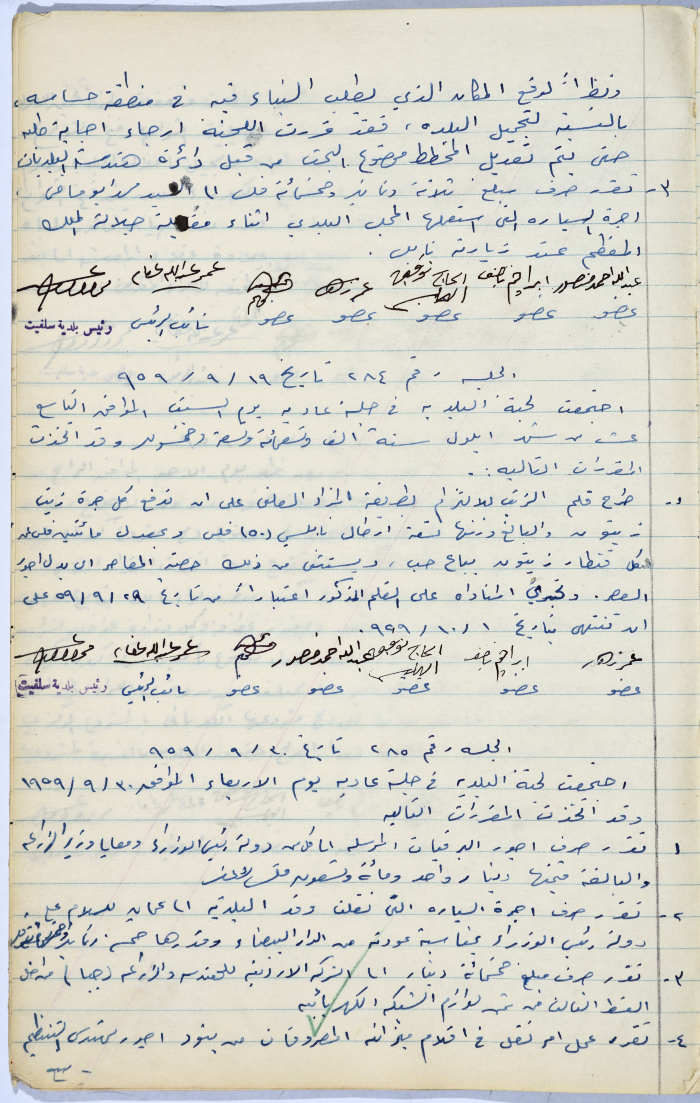 ونظراً لوقع المكان الذي يطلب البناء فيه في منطقة حساسه
بالنسبة لتجميل البلده ، فقد قررت اللجنة ارجاء اجابة طلبه
حتى يتم تعديل المخطط موضوع البحث من قبل دائرة هندسة البلديات
٣- تقرر صرف مبلغ ثلاثة دنانير وخمسمائة فلس الى السيد ابو ماضي
اجرة السياره التي استعملها المجلس البلدي اثناء مقابلة جلالة الملك
المعظم عند زيارته نابلس .
عبدالله احمد منصور ابراهيم ناصف الحاج توفيق عمر عبدالله غنام
عضو عضو عضو عضو عضو نائب الرئيس رئيس بلدية سلفيت
الجلسه رقم ٢٨٤ تاريخ ١٩ / ٩ / ٩٥٩
اجتمعت لجنة البلديه في جلسة عاديه يوم السبت الموافق التاسع
عشر من شهر ايلول سنة الف وتسعمائة وتسعة وخمسون وقد اتخذت
المقررات التاليه :.
١- طرح قلم الزيت للالتزام بطريقة المزاد العلني على ان تدفع كل جرة زيت
زيتون والبالغ وزنها تسعة ارطال نابلسي (٥٠) فلس وبمعدل مائتين فلس عن
كل قنطار زيتون يباع حب ، ويستثنى من ذلك حصة المعاصر اي بدل اجور
العصر . وتجري المناداه على القلم المذكور اعتباراً من تاريخ ٢٩/ ٩/ ٥٩ على
ان تنتهي بتاريخ ١ / ١٠ / ٩٥٩ .
ابراهيم ناصف الحاج توفيق عبدالله احمد منصور عمر عبدالله غنام
عضو عضو عضو عضو عضو نائب الرئيس رئيس بلدية سلفيت
الجلسه رقم ٢٨٥ تاريخ ٣٠ / ٩ / ٩٥٩
اجتمعت لجنة البلديه في جلسة عاديه يوم الاربعاء الموافق ٣٠/ ٩/ ١٩٥٩
وقد اتخذت المقررات التاليه
١ تقرر صرف اجور البرقيات المرسله الى كل من دولة رئيس الوزراء ومعالي وزير الزراعه
والبالغة قيمتها دينار واحد ومائة وتسعون فلس لا غير
٢- تقرر صرف اجرة السياره التي نقلت وفد البلديه الى عمان للسلام على
دولة رئيس الوزراء بمناسبة عودته من الدار البيضاء وقدرها خمسة دنانير
٣- تقرر صرف مبلغ خمسمائة دينار الى الشركة الاردنيه للهندسه والزراعه (جبا) من اصل
القسط الثالث من ثمن لوازم الشبكه الكهربائيه
٤- تقرر عمل امر نقل في اقلام ميزانه المصروفات من بنود اجور مهندس التنظيم